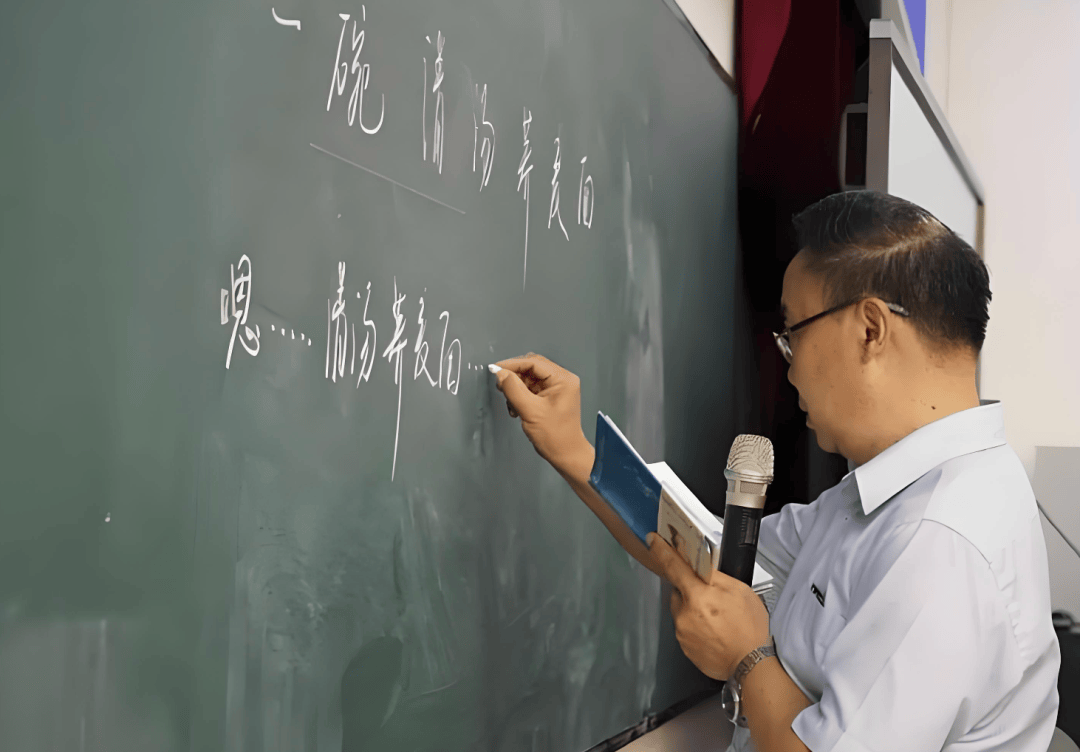 一碗清汤荞麦面
嗯……清汤荞麦面…